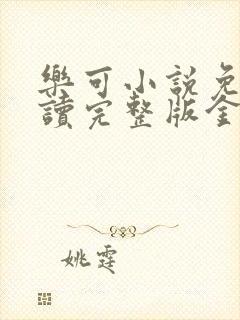 樂可小說免
讀完整版全
姚霆